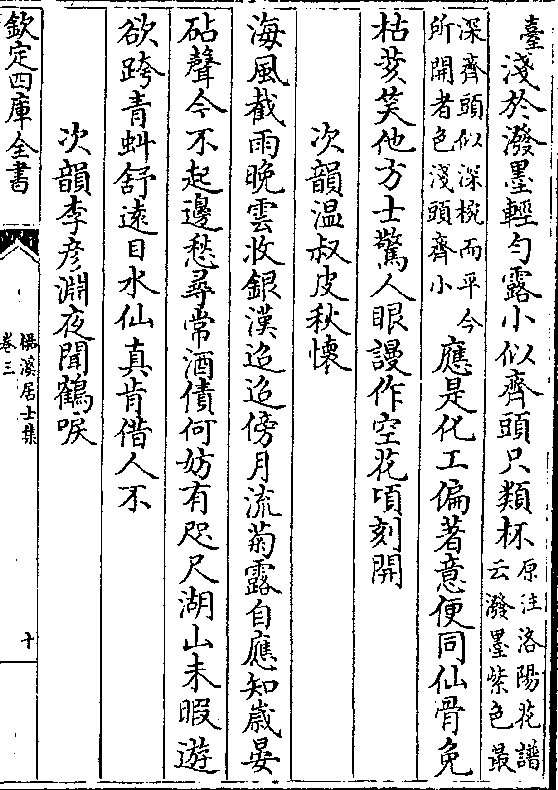 臺淺於潑墨輕勻露小似齊頭只類杯原注洛陽花譜
云潑墨紫色最
深齊頭似深椀而平今
所開者色淺頭齊小
應是化工偏著意便同仙骨免
枯荄笑他方士驚人眼謾作空花頃刻開
次韻温叔皮秋懷
海風截雨晚雲收銀漢迢迢傍月流菊露自應知嵗晏
砧聲今不起邊愁尋常酒債何妨有咫尺湖山未暇遊
欲跨青虯舒遠目水仙真肯借人不
次韻李彦淵夜聞鶴唳
欽定四庫全書
檆溪居士集
卷三
十